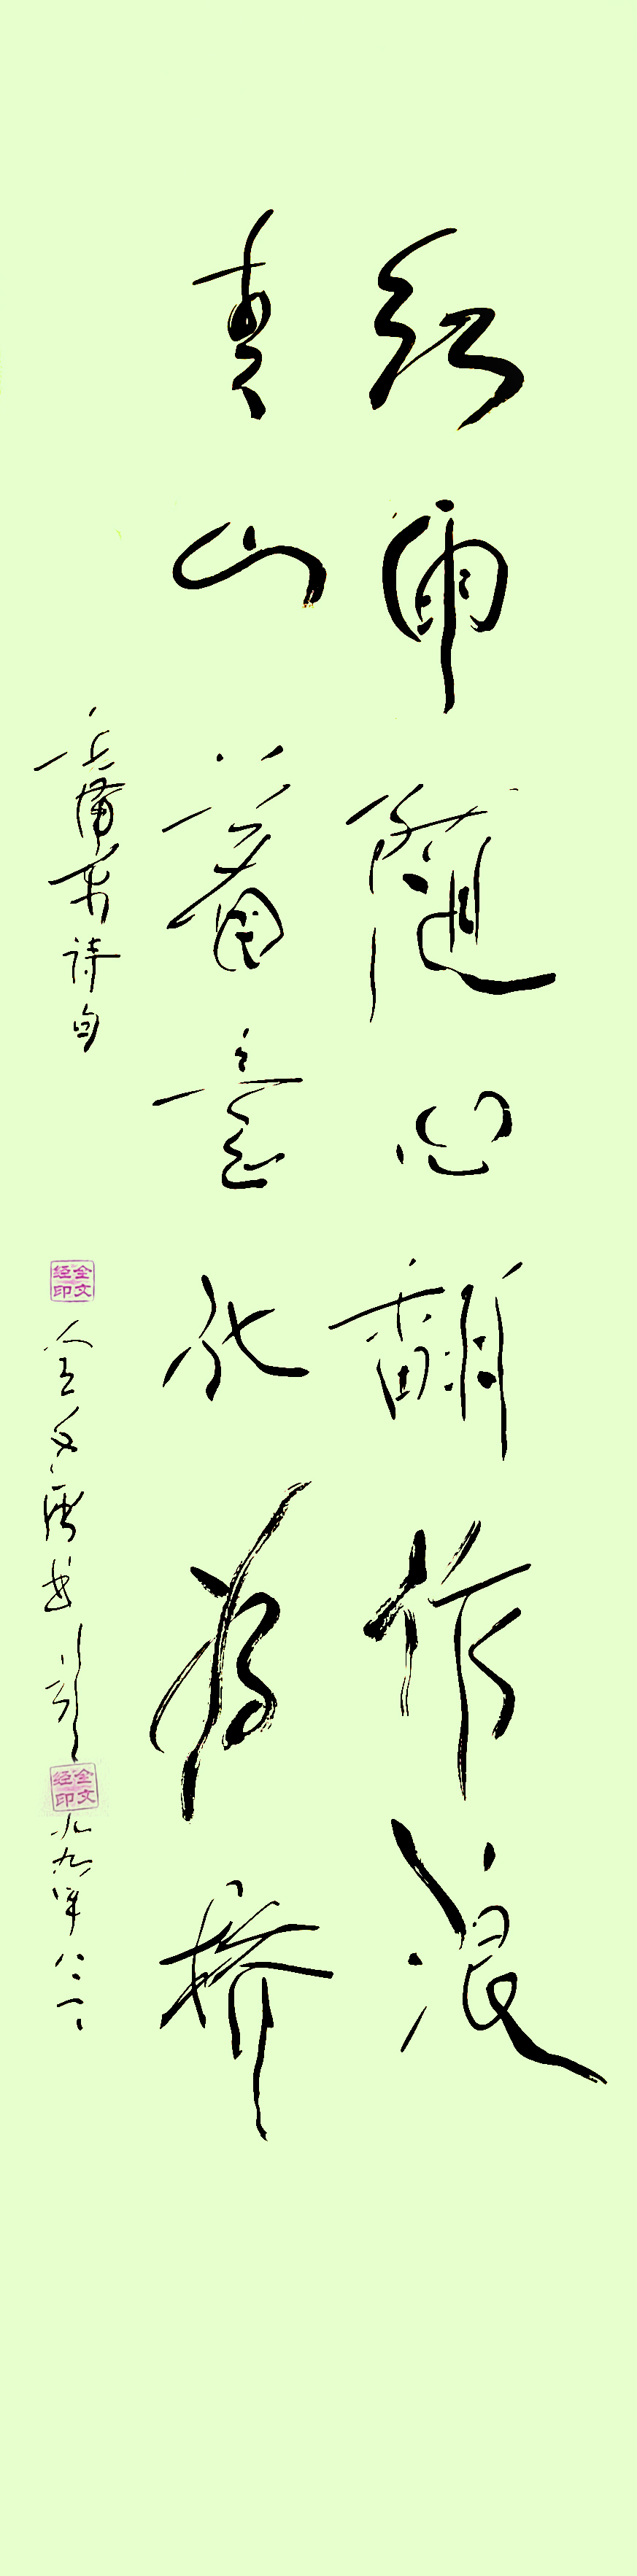 红雨随心翻作浪
青山著意化为桥
毛泽东诗句
全文经印
全文经书
全文经印
九年八